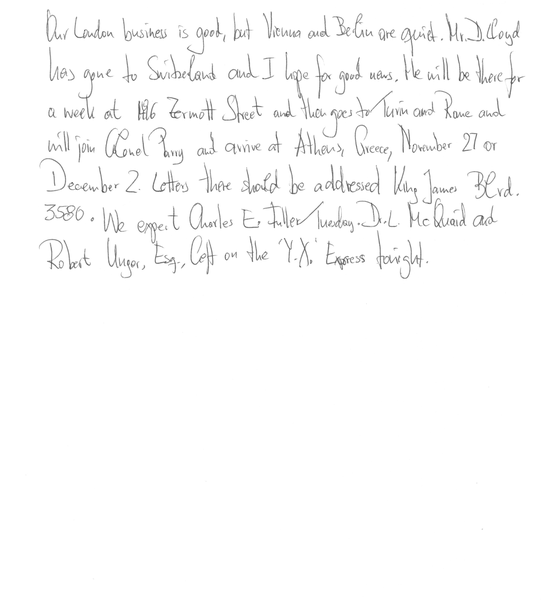 Our London business is good, but Vienna and Berlin are quiet. Mr. D. Lloyd
has gone to Switzeland and I hope for good news. He will be there for
a week at 1496 Zermott Street and then goes to Turin and Rome and
will join Colonel Parry and arrive at Athens, Greece, November 27 or
December 2. Letters there should be addressed King James Blvd.
3580. We expect Charles E. Fuller Tuesday. Dr. L McQuaid and
Robert Unger, Esq., left on the 'Y.X.' Express tonight.